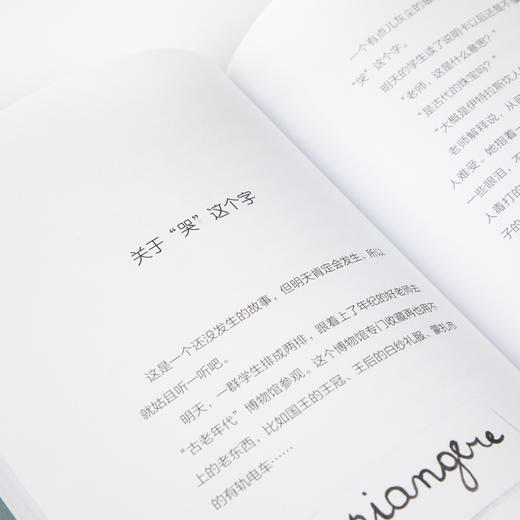 关于“哭”这个字
这是一个还没发生的故事，但明天肯定会发生，所以
就姑且听一听吧。
明天，一群学生排成两排，跟着上了年纪的好老师去
“古老年代”博物馆参观。这个博物馆专门收藏再也用不
上的老东西，比如国王的王冠、王后的白纱礼服、蒙扎市
的有轨电车……
piangere
一个有点儿灰尘的玻
“哭”这个字。
明天的学生读了说明卡以后还是不
“老师，这是什么意思？”
“是古代的珠宝吗？”
“大概是伊特拉斯坎人
老师解释说，从前
人难受。她指着一
一些眼泪，不
人毒打的
子的